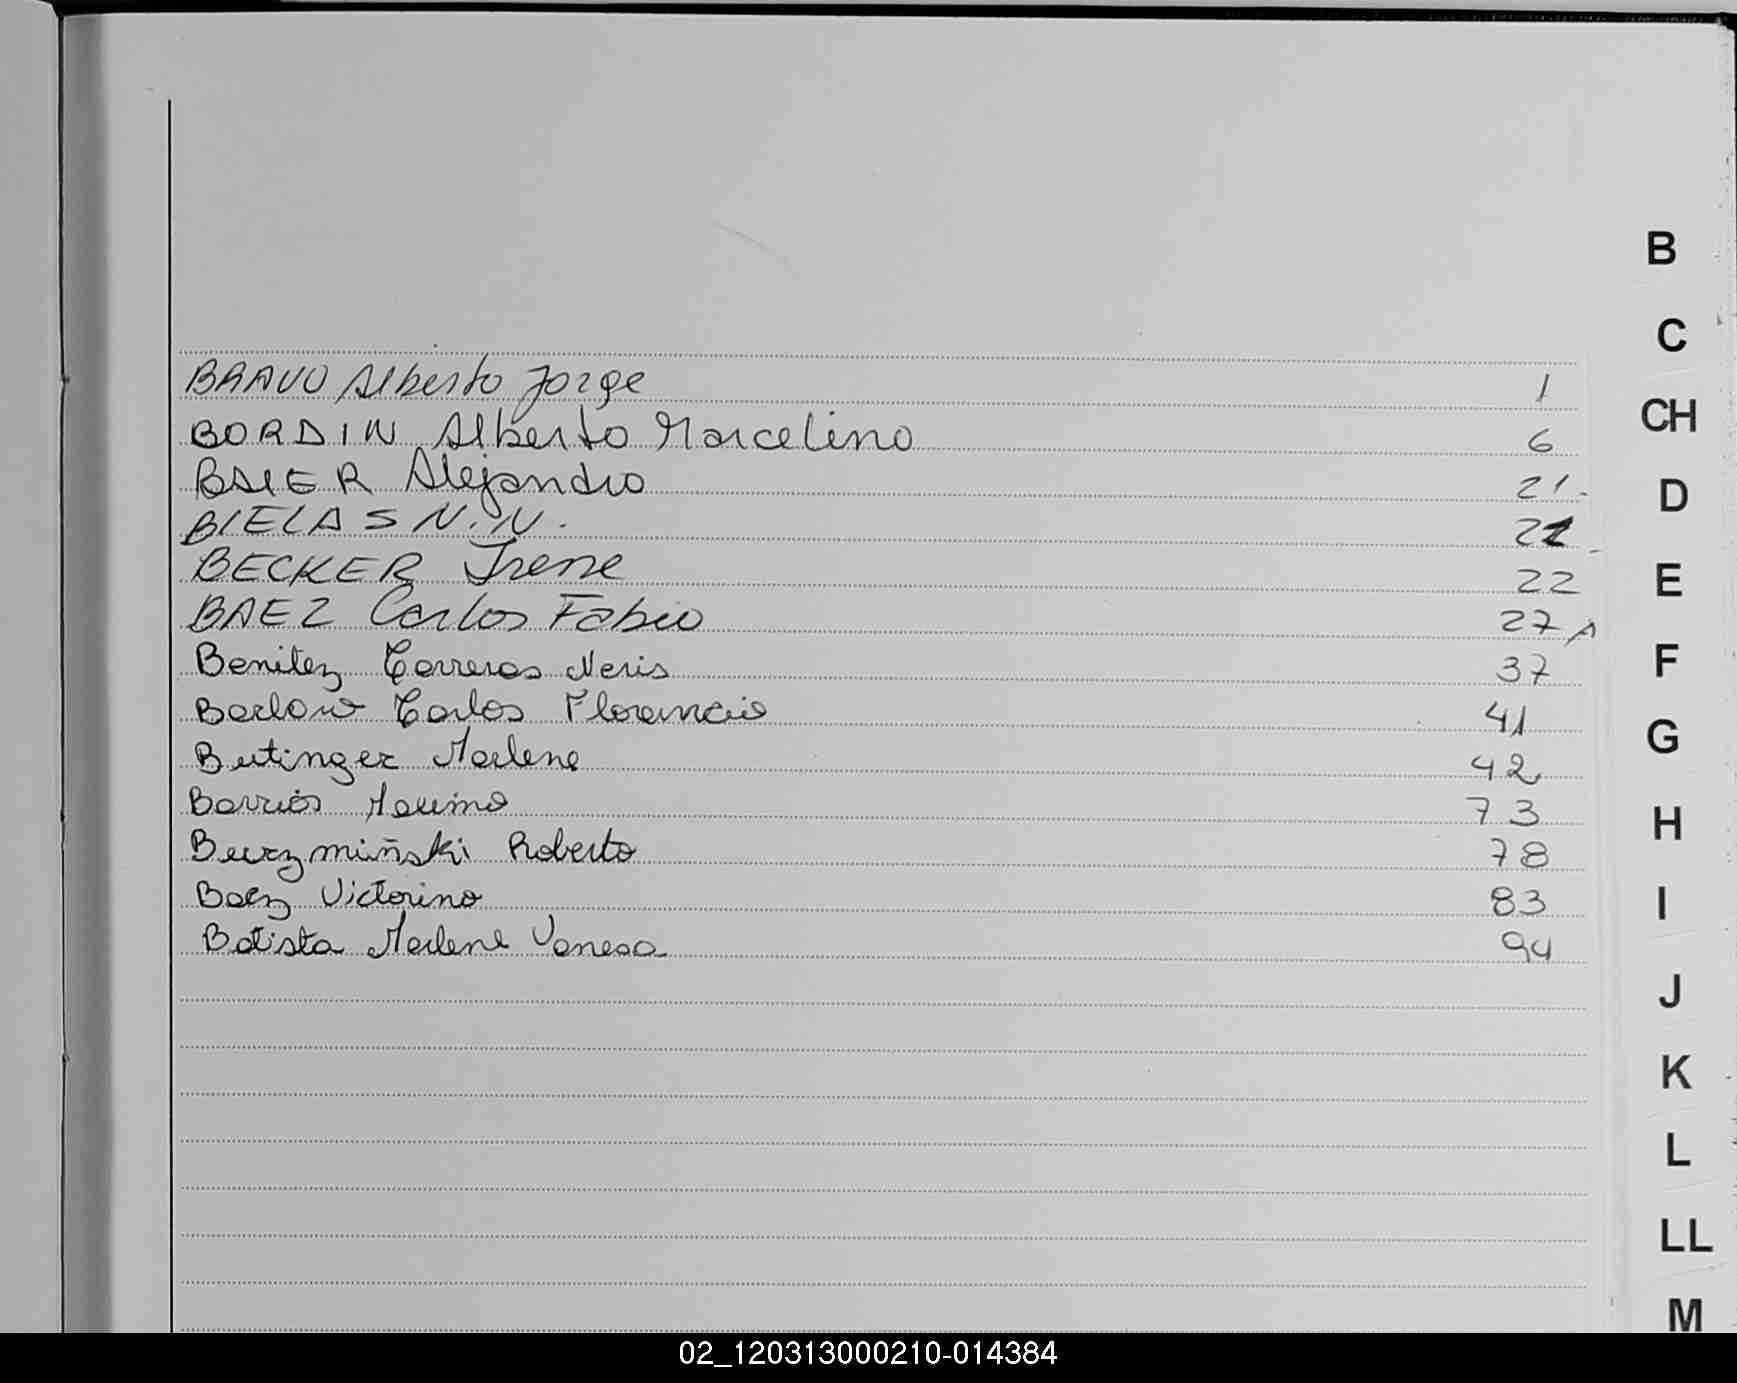 BRAVO Alberto Jorge 1
BORDIN Alberto Marcelino 6
BAIER Alejandro 21
BIELAS N.N. 21
BECKER Irene 22
BAEZ Carlos Fabio 27 A
Benitez Carreras Neris 37
Barlow Carlos Florencio 41
Butinger Marlene 42
Barrios Maximo 73
Burzmiñski Roberto 78
Baez Victorino 83
Batista Marlene Vanesa 94
B
C
CH
D
E
F
G
H
I
J
K
L
LL
M
02_120313000210-014384